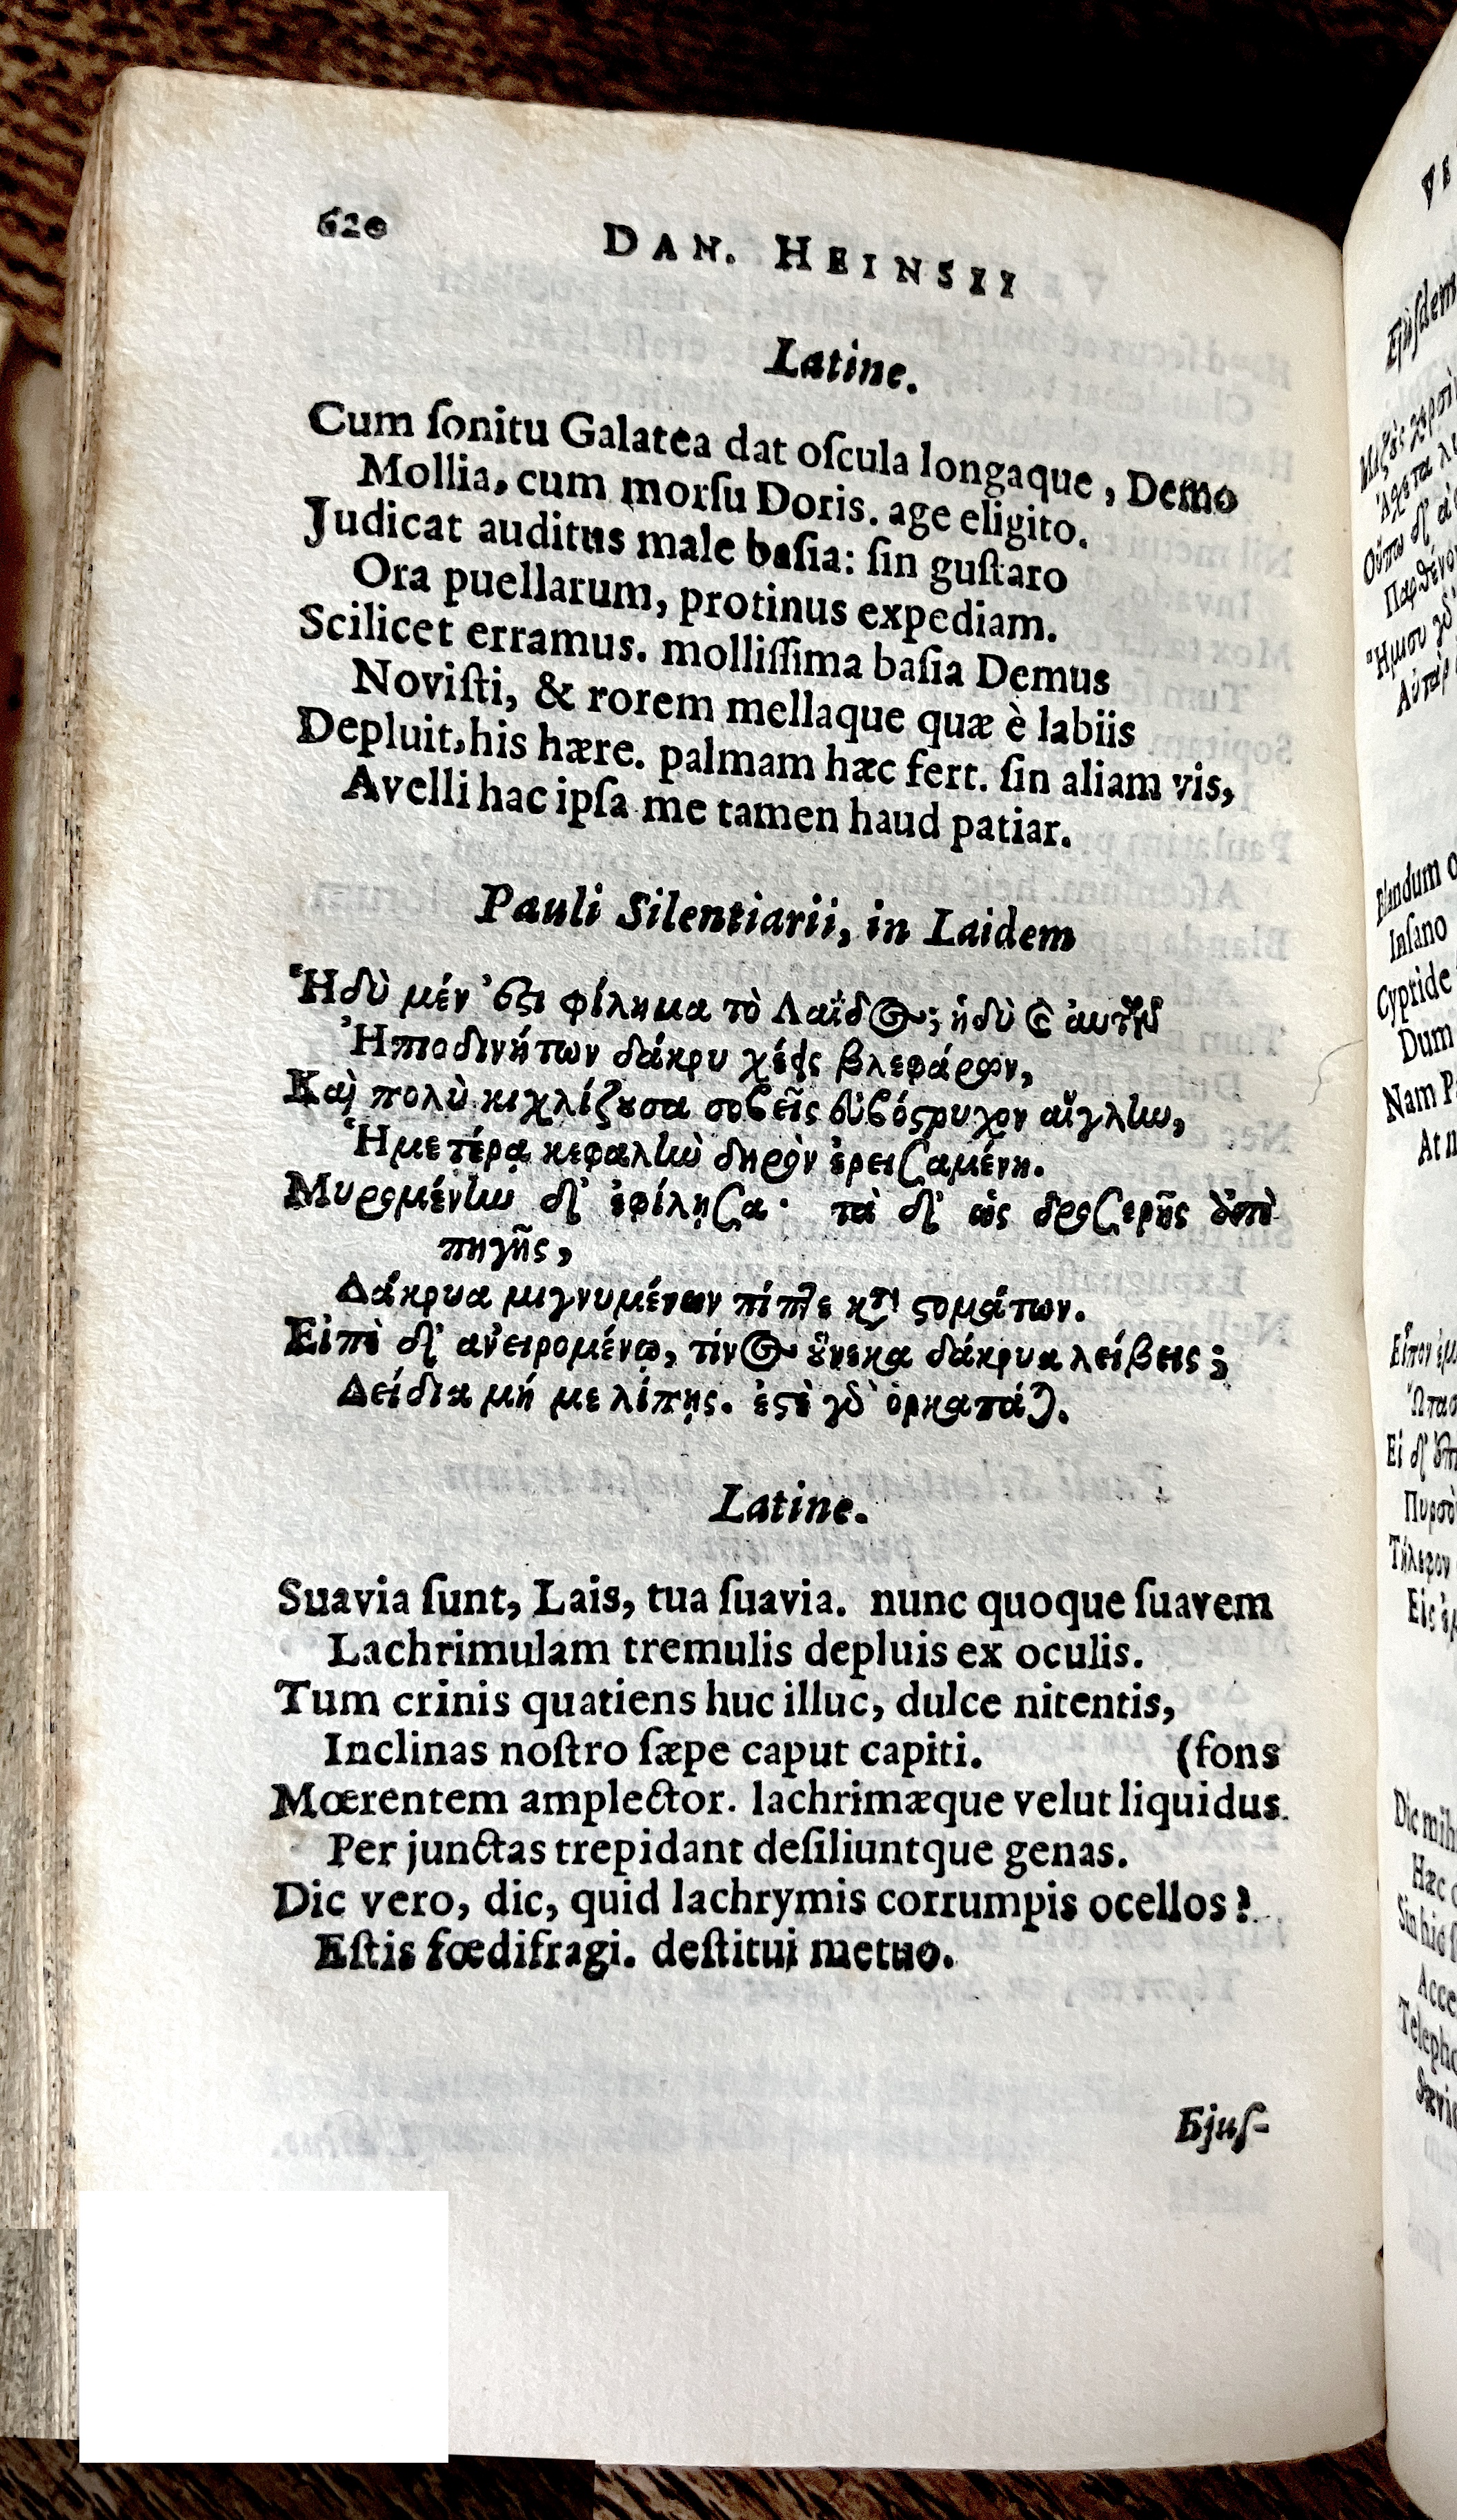 620
DAN. HEINSII
Latine.
Cum ſonitu Galatea dat oſcula longaque, Demo
Mollia, cum morſu Doris. age eligito.
Judicat auditus male baſia: ſin guſtaro
Ora puellarum, protinus expediam.
Scilicet erramus. molliſſima baſia Demus
Noviſti, & rorem mellaque quæ è labiis
Depluit, his hære. palmam hæc fert. ſin aliam vis,
Avelli hac ipſa me tamen haud patiar.
Pauli Silentiarii, in Laidem
Ἡδὺ μέν ’ϛι φίλημα τὸ Λαΐδος; ἡδὺ ϗ αὐτῶν
Ἠπιοδινήτων δάκρυ χέεις βλεφάρων,
Καὶ πολὺ κιχλίζουσα σοβεῖς εὐβόϛρυχον αἴγλην,
Ἡμετέρᾳ κεφαλὴν δηρὸν ἐρεισαμένη.
Μυρομένην δ’ ἐφίλησα· τὰ δ’ ὡς δροσερῆς ἀπὸ
πηγῆς,
Δάκρυα μιγνυμένων πίπτε κατὰ ϛομάτων.
Εἶπε δ’ ἀνειρομένῳ, τίνος οὕνεκα δάκρυα λείβεις;
Δείδια μή με λίπῃς. ἐϛὲ γὰρ ὁρκαπάται.
Latine.
Suavia ſunt, Lais, tua ſuavia. nunc quoque ſuavem
Lachrimulam tremulis depluis ex oculis.
Tum crinis quatiens huc illuc, dulce nitentis,
Inclinas noſtro ſæpe caput capiti. (fons
Mœrentem amplector. lachrimæque velut liquidus
Per junctas trepidant deſiliuntque genas.
Dic vero, dic, quid lachrymis corrumpis ocellos?
Eſtis fœdifragi. deſtitui metuo.
Ejuſ-